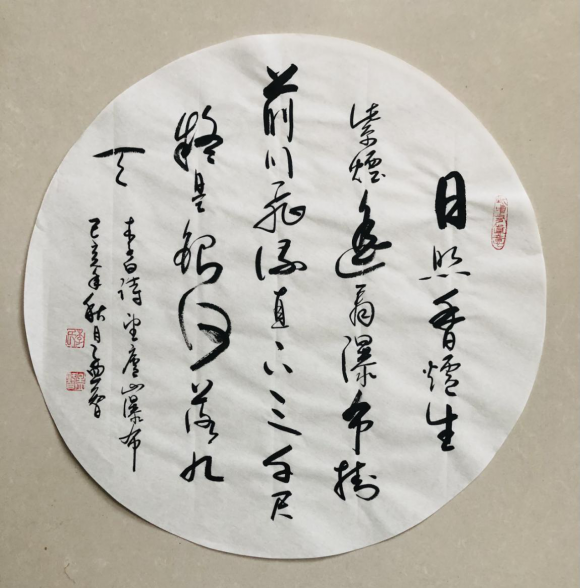 日照香爐生
紫煙遙看瀑布掛
前川飛流直下三千尺
疑是銀河落九
天
李白詩望廬山瀑布
己亥年秋月